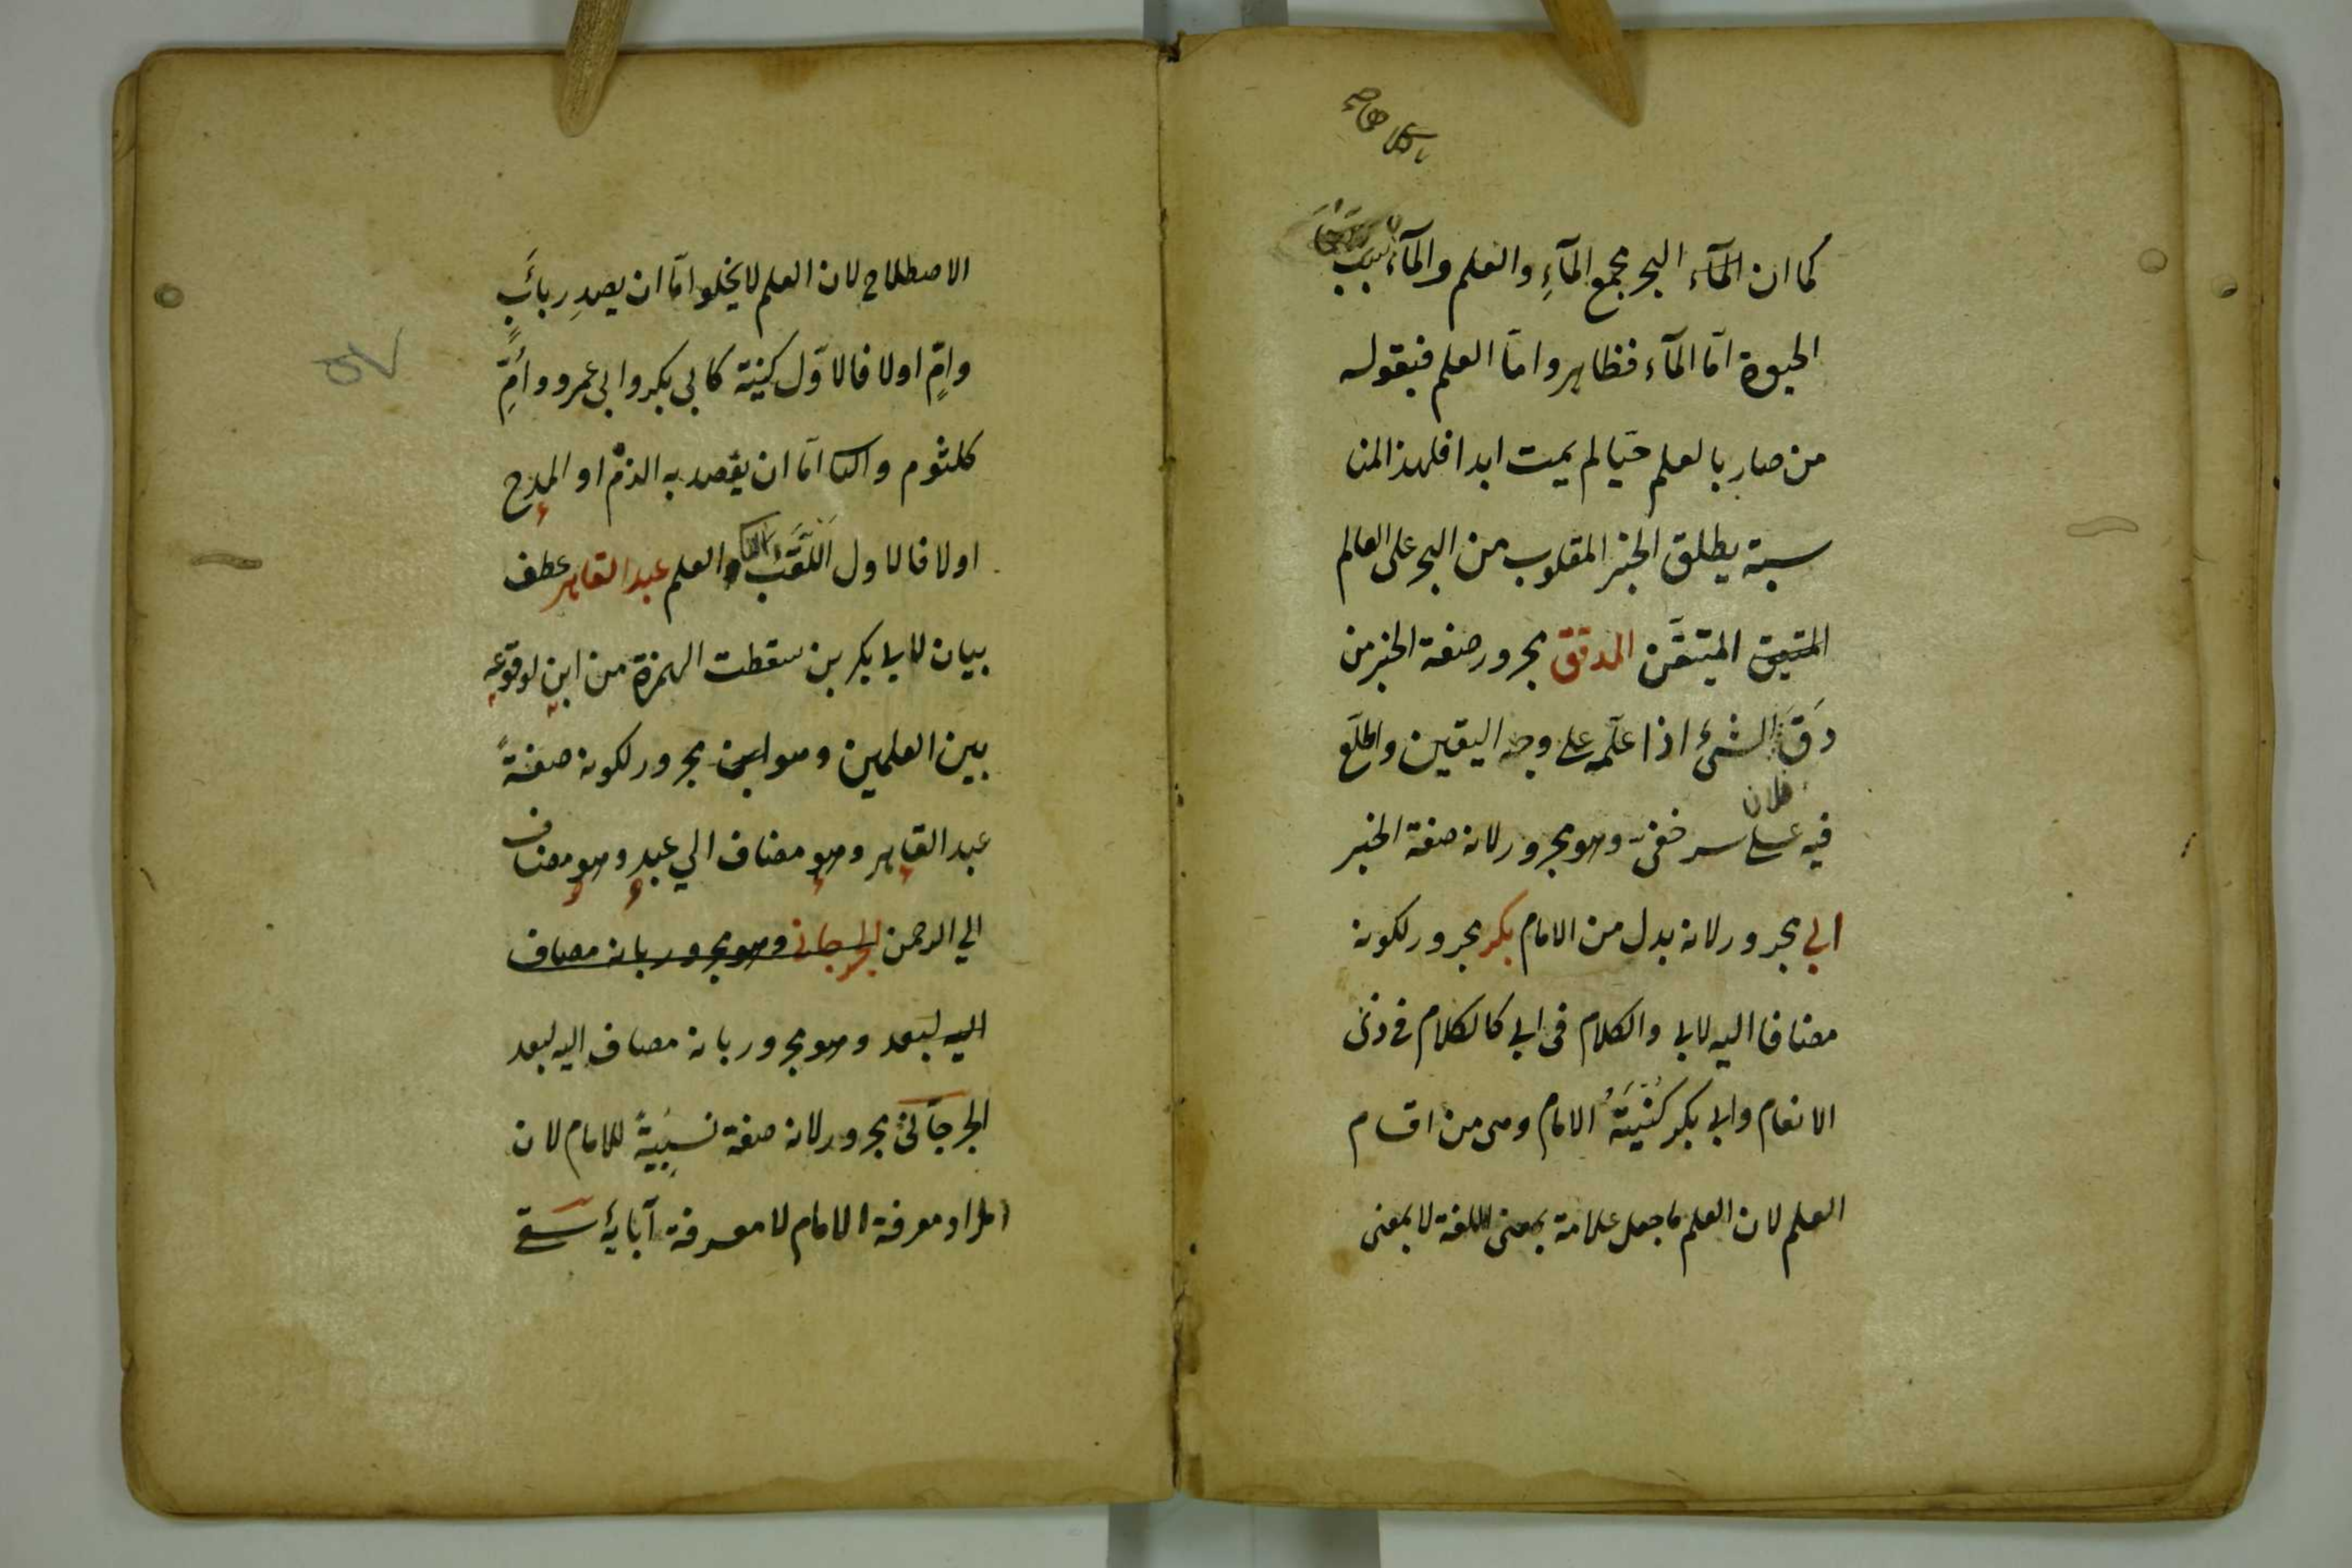 كما ان المآء البحر مجمع المآءِ والعلم والمآء سبب
الحيوة امّا المآء فظاهر وامّا العلم فبقوله
من صار بالعلم حيّا لم يمت ابدا فلهذ المنا
سبة يطلق الحبر المقلوب من البحر على العالم
المتيق المتيقّن المدقق مجرور صفة الحبر من
دَقّ الشئ اذا علّمه على وجه اليقين واطلّع
فلان
فيه على سر خفىّ وهو مجرور لانه صفة الحبر
ابي مجرور لانه بدل من الامام بكر مجرور لكونه
مضافا اليه لابي والكلام في ابي كالكلام في ذى
الانعام وابي بكر كُنْيَةُ الامام وهى من اقسام
العلم لان العلم ما جعل علامة بمعنى اللغة لا بمعنى
الاصطلاح لان العلم لا يخلوا امّا ان يصدر باَبٍ
واُمٍّ اولا فالاوّل كنية كابى بكر وابى عمرو واُمّ
كلثوم والثا امّا ان يقصد به الذمّ او المدح
اولا فالاول اللّقَبُ والثا العلم عبد القاهر عطف
بيان لابي بكر بن سقطت الهمزة من ابن لوقوعه
بين العلمين وهو ابن مجرور لكونه صفةً
عبد القاهر وهو مضاف الي عبد وهو مضاف
الي الرحمن الجرجانى وهو مجرور بانه مضاف
اليه لبعد وهو مجرور بانه مضاف اليه لبعد
الجرجّانىّ مجرور لانه صفة نسبيةً للامام لان
المراد معرفة الامام لا معرفة آبايه سقى